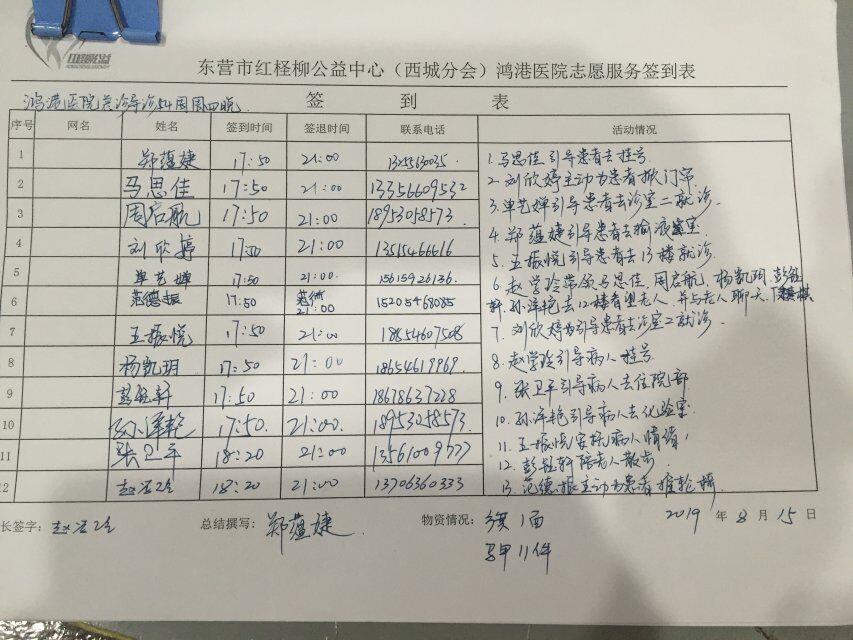 红柽柳公益
东营市红柽柳公益中心（西城分会）鸿港医院志愿服务签到表
鸿港医院急诊导诊 周周四晚
签 到 表
序号 网名 姓名 签到时间 签退时间 联系电话 活动情况
1 郑蕴婕 17:50 21:00
2 马思佳 17:50 21:00 13356609532
3 周启航 17:50 21:00 18953058573
4 刘欣婷 21:00 13515466616
5 单艺婵 17:50 21:00 15615926136
6 范德振 17:50 21:00 15205468085
7 王振悦 17:50 21:00 18854607508
8 杨凯玥 17:50 21:00 18654619969
9 彭钰轩 17:50 21:00 18678637228
10 孙泽艳 17:50 21:00 18953058573
11 张卫平 18:20 21:00 13561009777
12 赵学玲 18:20 21:00 13706360333
1.马思佳引导患者去挂号
2.刘欣婷主动为患者掀门帘
3.单艺婵引导患者去诊室二就诊
4.郑蕴婕引导患者去输液室
5.王振悦引导患者去13楼就诊
6.赵学玲带领马思佳、周启航、杨凯玥、彭钰
轩、孙泽艳去12楼看望老人，并与老人聊天、下棋
7.刘欣婷引导患者去诊室二就诊
8.赵学玲引导病人挂号
9.张卫平引导病人去住院部
10.孙泽艳引导病人去化验室
11.王振悦安抚病人情绪
12.彭钰轩陪老人散步
13.范德振主动为患者推轮椅
长签字：赵学玲 总结撰写：郑蕴婕 物资情况：旗1面 2019 年 8 月 15 日
马甲11件